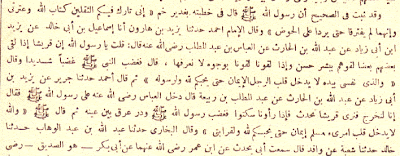 وقد ثبت في الصحيح أن رسول الله ﷺ قال في خطبته بغدير خم « إني تارك فيكم الثقلين كتاب الله وعترتي
وإنهما لم يفترقا حتى يردا علي الحوض » وقال الإمام أحمد حدثنا يزيد بن هارون أنا إسماعيل بن أبي خالد عن يزيد
ابن أبي زياد عن عبد الله بن الحارث عن العباس بن عبد المطلب رضي الله عنه قال: قلت يا رسول الله إن قريشا إذا لقي
بعضهم بعضا لقوهم ببشر حسن وإذا لقونا لقونا بوجوه لا نعرفها ، قال فغضب النبي ﷺ غضبا شديدا وقال
« والذي نفسي بيده لا يدخل قلب الرجل الإيمان حتى يحبكم لله ولرسوله » ثم قال أحمد حدثنا جرير عن يزيد بن
أبي زياد عن عبد الله بن الحارث عن عبد المطلب بن ربيعة قال دخل العباس رضي الله عنه على رسول الله ﷺ فقال
إنا لنخرج فنرى قريشا تحدث فإذا رأونا سكتوا فغضب رسول الله ﷺ ودر عرق بين عينيه ثم قال ﷺ « والله
لا يدخل قلب امرىء مسلم إيمان حتى يحبكم لله ولقرابتي » وقال البخاري حدثنا عبد الله بن عبد الوهاب حدثنا
خالد حدثنا شعبة عن واقد قال سمعت أبي يحدث عن ابن عمر رضي الله عنهما عن أبي بكر – هو الصديق – رضي